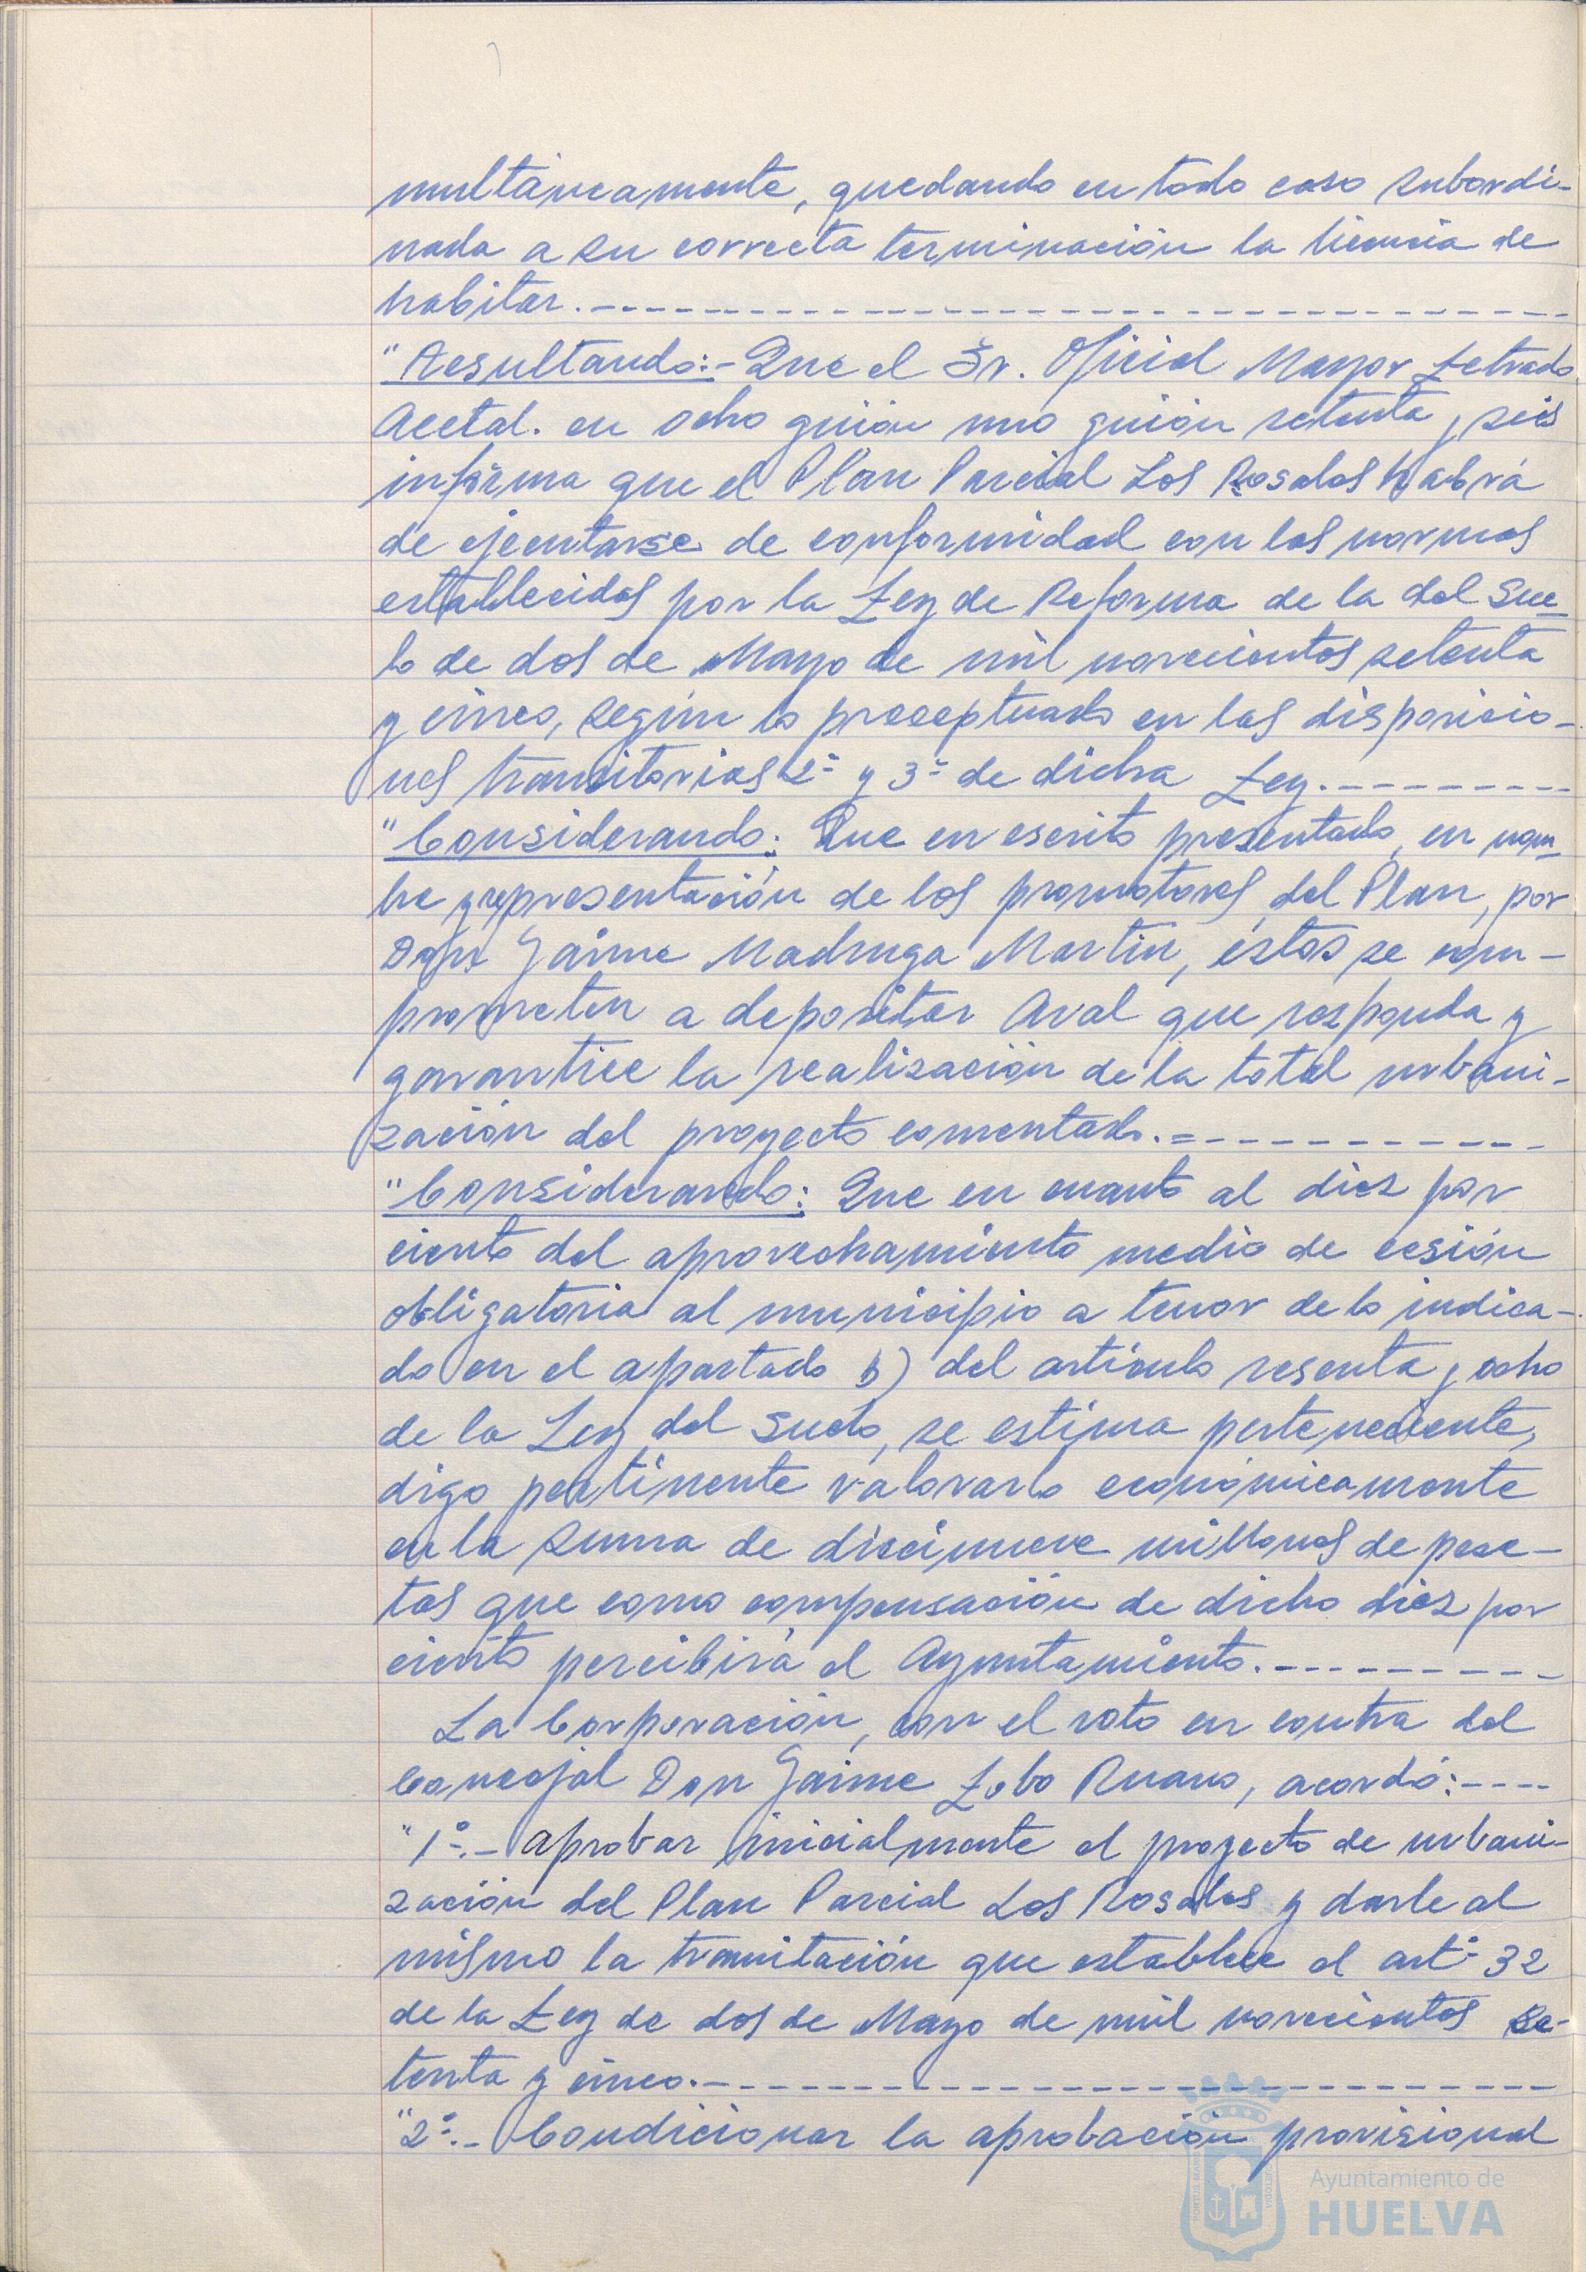 multáneamente, quedando en todo caso subordi-
nada a su correcta terminación la licencia de
habitar.------------------------------
"Resultando:- Que el Sr. Oficial Mayor Letrado
Acctal. en ocho guión uno guión setenta y seis
informa que el Plan Parcial Los Rosales habrá
de ejecutarse de conformidad con las normas
establecidas por la Ley de Reforma de la del Sue-
lo de dos de Mayo de mil novecientos setenta
y cinco, según lo preceptuado en las disposicio-
nes transitorias 2ª y 3ª de dicha Ley.---------
"Considerando: Que en escrito presentado, en nom-
bre y representación de los promotores del Plan, por
Don Jaime Madruga Martín, éstos se com-
prometen a depositar Aval que responda y
garantice la realización de la total urbani-
zación del proyecto comentado.=----------
"Considerando: Que en cuanto al diez por
ciento del aprovechamiento medio de cesión
obligatoria al municipio a tenor de lo indica-
do en el apartado b) del artículo sesenta y ocho
de la Ley del Suelo, se estima perteneciente,
digo pertinente valorarlo económicamente
en la suma de diecinueve millones de pese-
tas que como compensación de dicho diez por
ciento percibirá el Ayuntamiento.---------
La Corporación, con el voto en contra del
Concejal Don Jaime Lobo Ruano, acordó:----
"1º.- Aprobar inicialmente el proyecto de urbani-
zación del Plan Parcial Los Rosales y darle al
mismo la tramitación que establece el artº 32
de la Ley de dos de Mayo de mil novecientos se-
tenta y cinco.---------------------------
"2º.- Condicionar la aprobación provisional
Ayuntamiento de
HUELVA